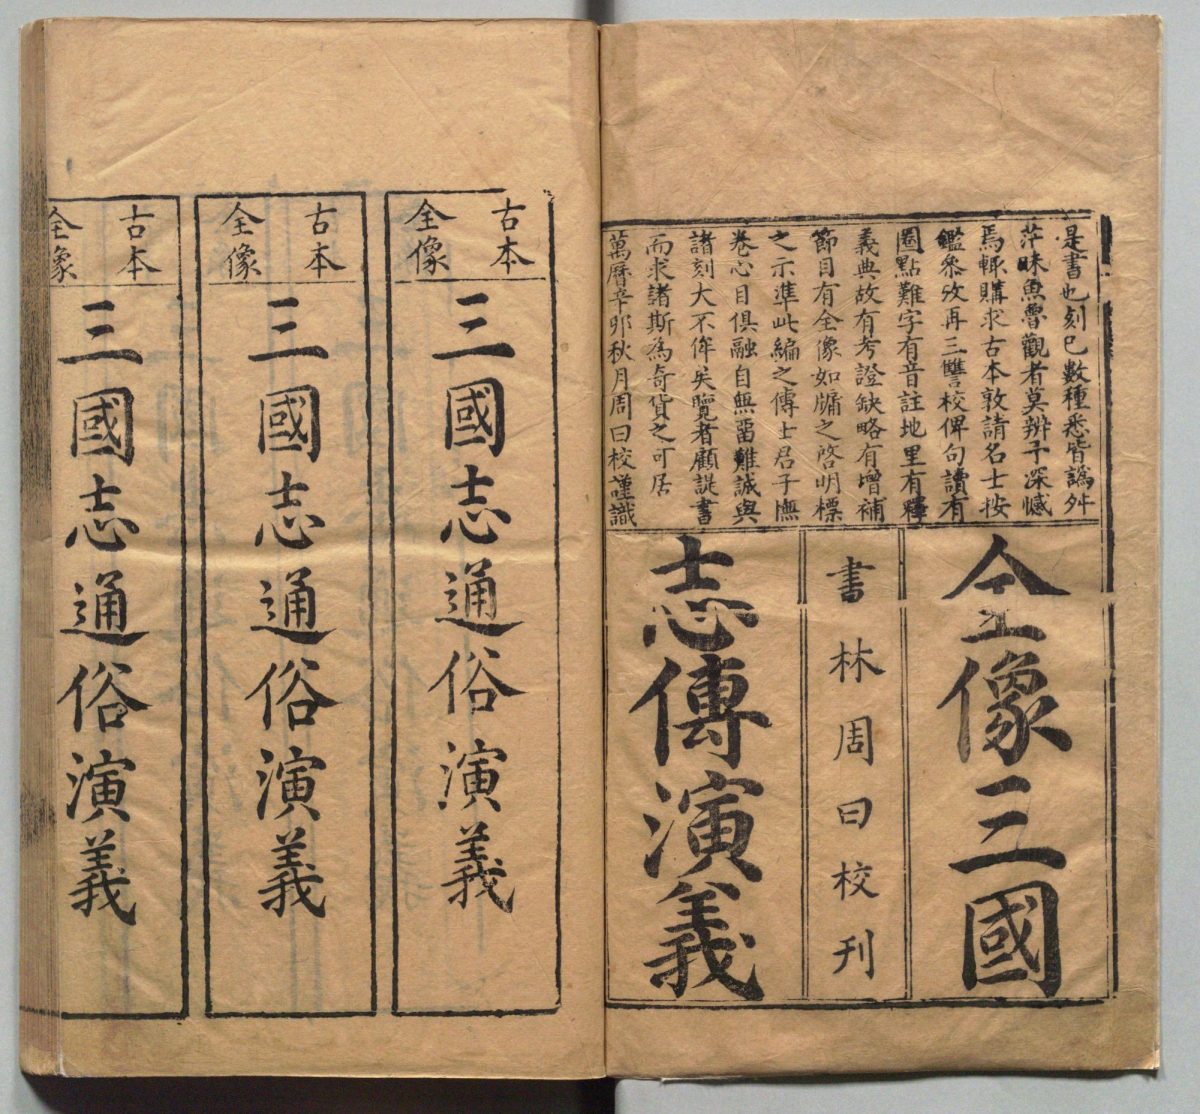 是書也刻已數種悉皆譌舛
茫昧魚魯觀者莫辨予深憾
焉輒購求古本敦請名士按
鑑叅攷再三讐校俾句讀有
圈點難字有音註地里有釋
義典故有考證缺略有增補
節目有全像如牖之啓明標
之示準此編之傳士君子撫
卷心目俱融自無留難誠與
諸刻大不侔矣覽者顧諟書
而求諸斯為奇貨之可居
萬曆辛卯秋月周曰校謹識
全像三國
書林周曰校刊
志傳演義
古本
全像
三國志通俗演義
古本
全像
三國志通俗演義
古本
全像
三國志通俗演義